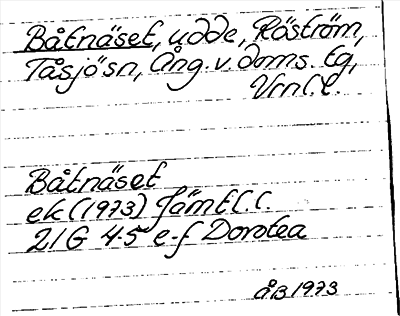 Båtnäset, udde, Röström,
Tåsjö sn, Ång. v. doms. tg,
Vrnl. l.
Båtnäset
ek (1973) Jämtl. l.
21G 4-5 e-f Dorotea
ÅB 1973